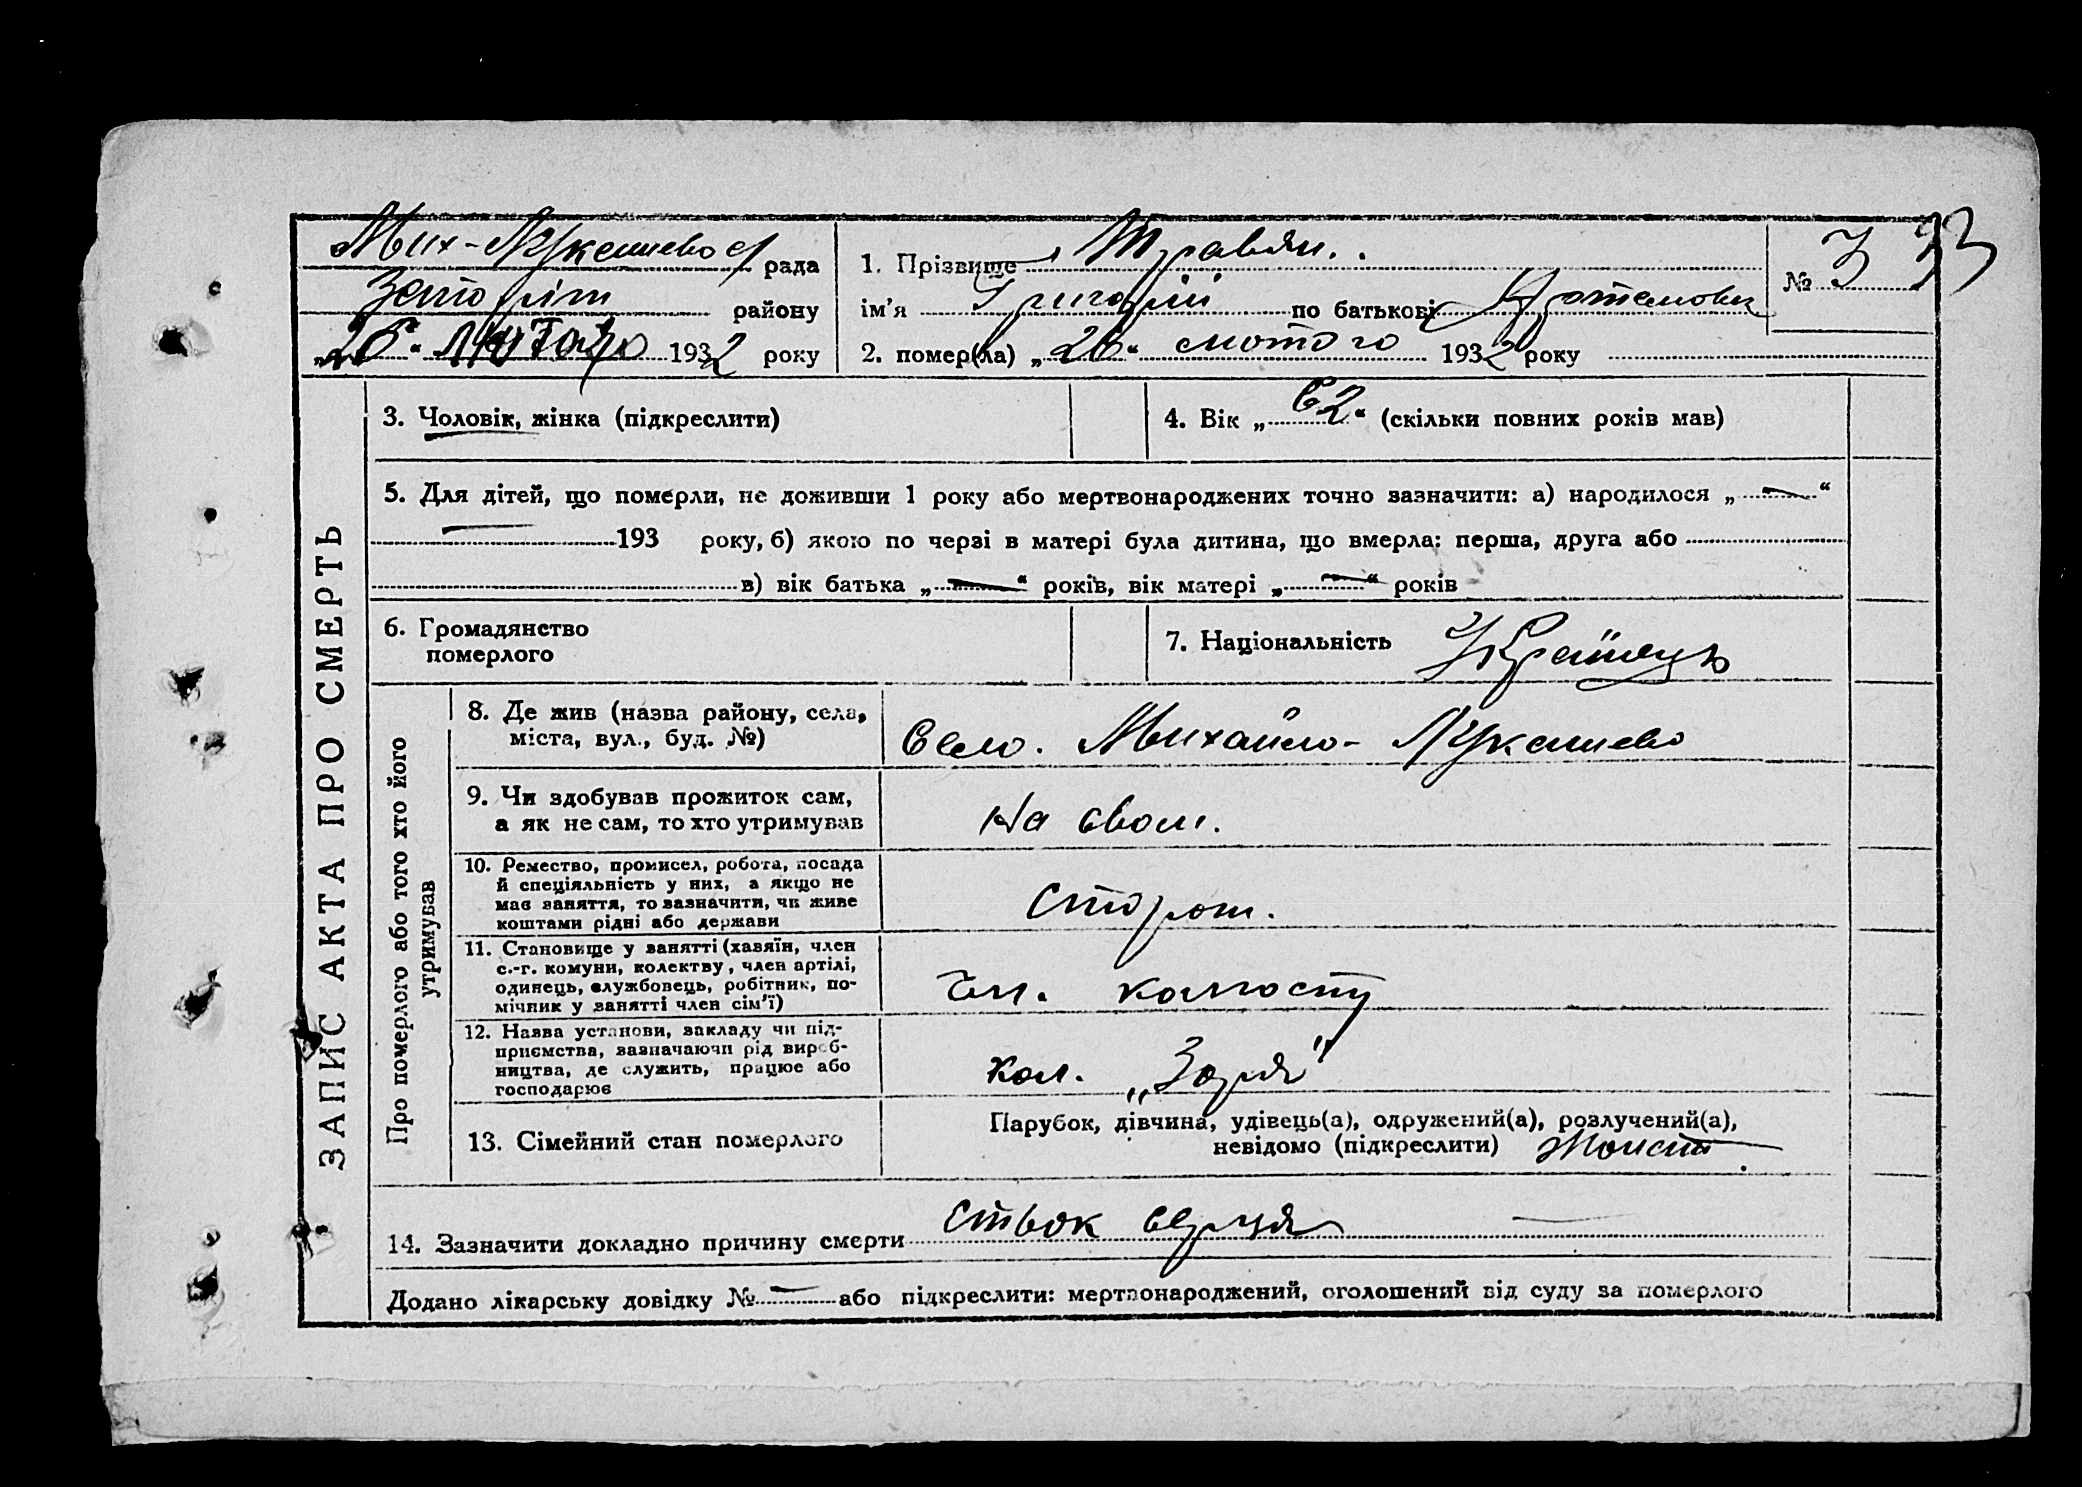 Мих-Лукашево с/ рада
району
„26“ Лютого 1932 року
1. Прізвище Травян..
ім’я Григорій по батькові Артемович
2. помер(ла) „26“ лютого 1932 року
№ 3
33
ЗАПИС АКТА ПРО СМЕРТЬ
3. Чоловік, жінка (підкреслити)
4. Вік „62“ (скільки повних років мав)
5. Для дітей, що померли, не доживши 1 року або мертвонароджених точно зазначити: а) народилося „—“
— 193 року, б) якою по черзі в матері була дитина, що вмерла: перша, друга або
в) вік батька „—“ років, вік матері „—“ років
6. Громадянство
померлого
7. Національність Українець
Про померлого або того хто його
утримував
8. Де жив (назва району, села,
міста, вул., буд. №)
Село. Михайло-Лукашево
9. Чи здобував прожиток сам,
а як не сам, то хто утримував
На свом.
10. Ремество, промисел, робота, посада
й спеціяльність у них, а якщо не
має заняття, то зазначити, чи живе
коштами рідні або держави
Сторож.
11. Становище у занятті (хазяїн, член
с.-г. комуни, колективу, член артілі,
одинець, службовець, робітник, по-
мічник у занятті член сім’ї)
Чл. колгоспу
12. Назва установи, закладу чи під-
приємства, зазначаючи рід вироб-
ництва, де служить, працює або
господарює
кол. „Зоря“
13. Сімейний стан померлого
Парубок, дівчина, удівець(а), одружений(а), розлучений(а),
невідомо (підкреслити)
14. Зазначити докладно причину смерти серця —
Додано лікарську довідку № — або підкреслити: мертвонароджений, оголошений від суду за померлого